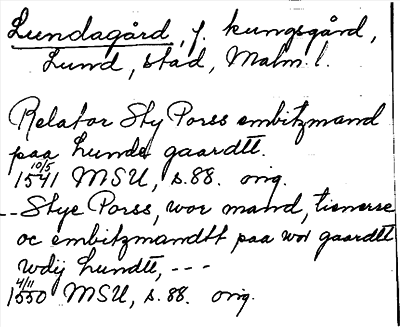 Lundagård, f. kungsgård,
Lund, stad, Malm. l.
Relator Sty Porss embitzmand
paa Lunde gaardtt.
10/5
1541 MSU, s. 88. orig.
-- Stye Porss, wor mand, tienerse
oc embitzmandtt paa wor gaardtt
wdij Lundtt, ---
4/11
1550 MSU, s. 88. orig.